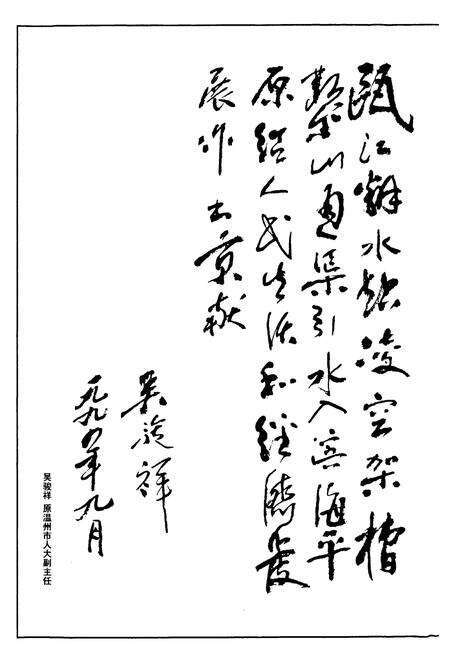 瓯江翻水站凌空架槽
鑿山通渠引水入滨海平
原给人民生活和经济发
展作出贡献
吴骏祥
一九九四年九月
吴骏祥 原温州市人大副主任